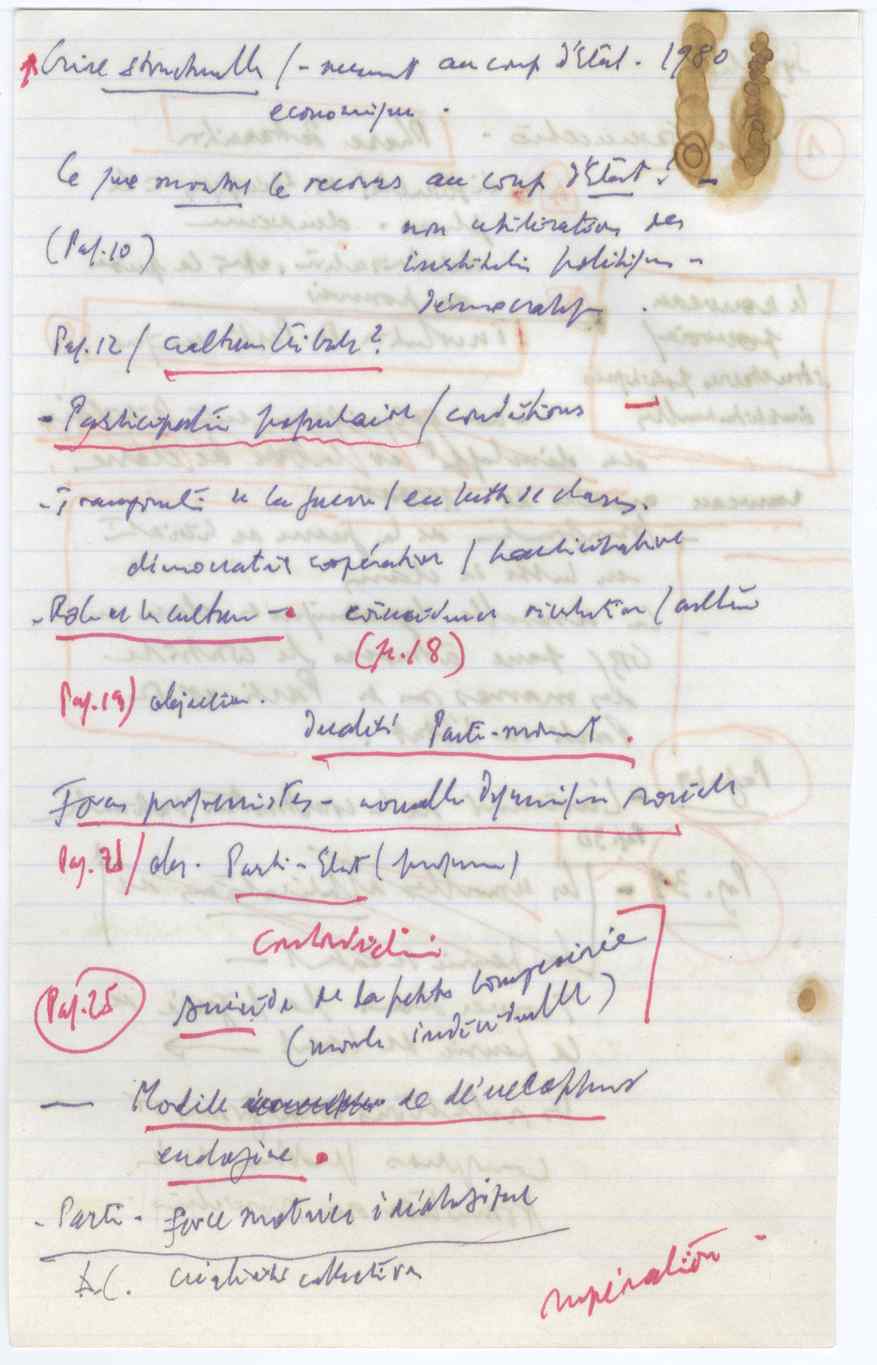 Crise structurelle / - recours au coup d'État - 1980
economique.
Ce que montre le recours au coup d'État ! -
(Pag. 10) non utilisation des
institutions politiques -
démocratiques.
Pag. 12 / culture tribale ?
- Participation populaire / conditions
- Transformation de la guerre / en lutte de classes.
démocratie coopérative /
- Role de la culture - coincidence révolution / culture
(p. 18)
Pag. 19) objection.
Dualité Parti-mouvt.
Forces progressistes - nouvelle dynamique sociale
Pag. 21 / obs. Parti - Etat ( )
Contradiction
Pag. 25 suicide de la petite bourgeoisie
(morale individuelle)
- Modèle de développement
endogène.
- Parti - force motrice idéologique
créativité collective